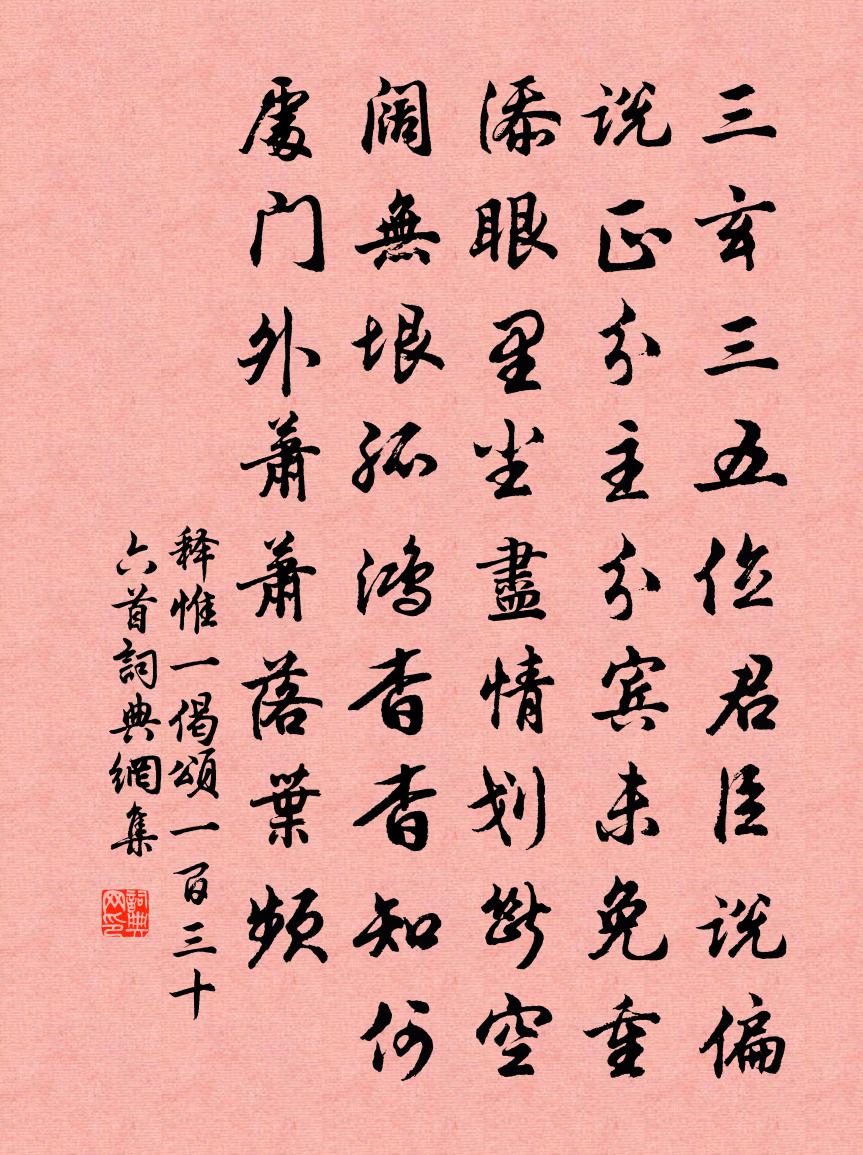 三玄三五位君臣说偏
说正分主分宾未免重
添眼里尘盡情划斷空
阔無垠孤鸿杳杳知何
處门外蕭蕭落葉频
释惟一偈頌一百三十
六首詞典網集
詞典网印